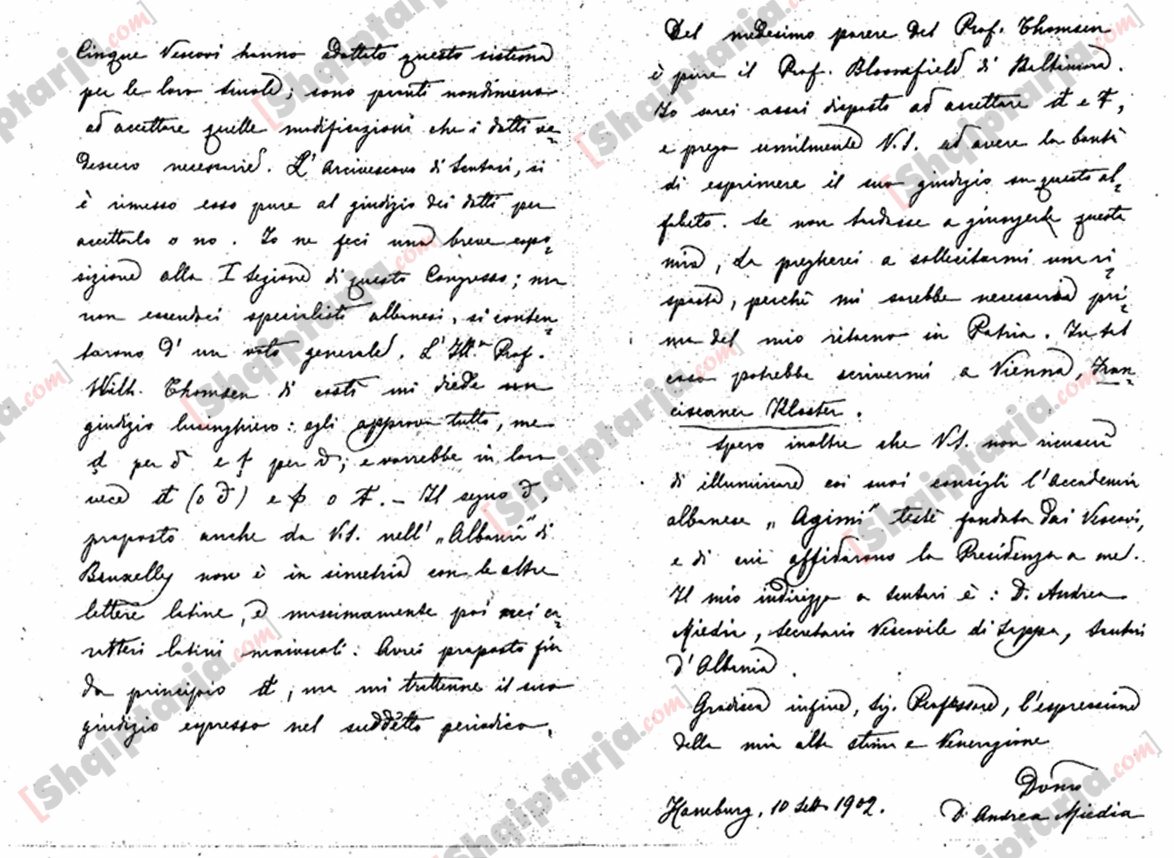 Cinque Vescovi hanno adottato questo sistema
per le loro scuole; sono pronti nondimeno
ad accettare quelle modificazioni che i dotti ve-
dessero necessarie. L'Arcivescovo di Scutari, si
è rimesso esso pure al giudizio dei dotti per
accettarlo o no. Io ne feci una breve espo-
sizione alla I Sezione di questo Congresso; ma
non essendoci specialisti albanesi, si conten-
tarono d'un voto generale. L'Ill.mo Prof.
Wilh. Thomsen di costì mi diede un
giudizio lusinghiero: egli approva tutto, me-
per e per ; e vorrebbe in loro
vece (o ) e o . – Il segno đ,
proposto anche da V.S. nell' „Albania" di
Bruxelles non è in simetria con le altre
lettere latine, e massimamente poi nei ca-
ratteri latini maiuscoli. Avrei proposto fin
da principio ; ma mi trattenne il suo
giudizio espresso nel suddetto periodico.
Del medesimo parere del Prof. Thomsen
è pure il Prof. Bloomfield di Baltimora.
Io sarei assai disposto ad accettare e ,
e prego umilmente V.S. ad avere la bontà
di esprimere il suo giudizio su questo al-
fabeto. Se non tardasse a giungerLe questa
mia, La pregherei a sollicitarmi una ri-
sposta, perchè mi sarebbe necessaria pri-
ma del mio ritorno in Patria. In tal
caso potrebbe scrivermi a Vienna, Fran-
ciscaner Kloster.
Spero inoltre che V.S. non ricuserà
di illuminare coi suoi consigli l'Accademia
albanese „Agimi" testè fondata dai Vescovi,
e di cui affidarono la Presidenza a me.
Il mio indirizzo a Scutari è: D. Andrea
Miedia, Secretario Vescovile di Sappa, Scutari
d'Albania.
Gradisca infine, Sig. Professore, l'espressione
della mia alta stima e venerazione
D. Andrea Miedia
Hamburg, 10 Sett. 1902.
[Shqiptarja.com]